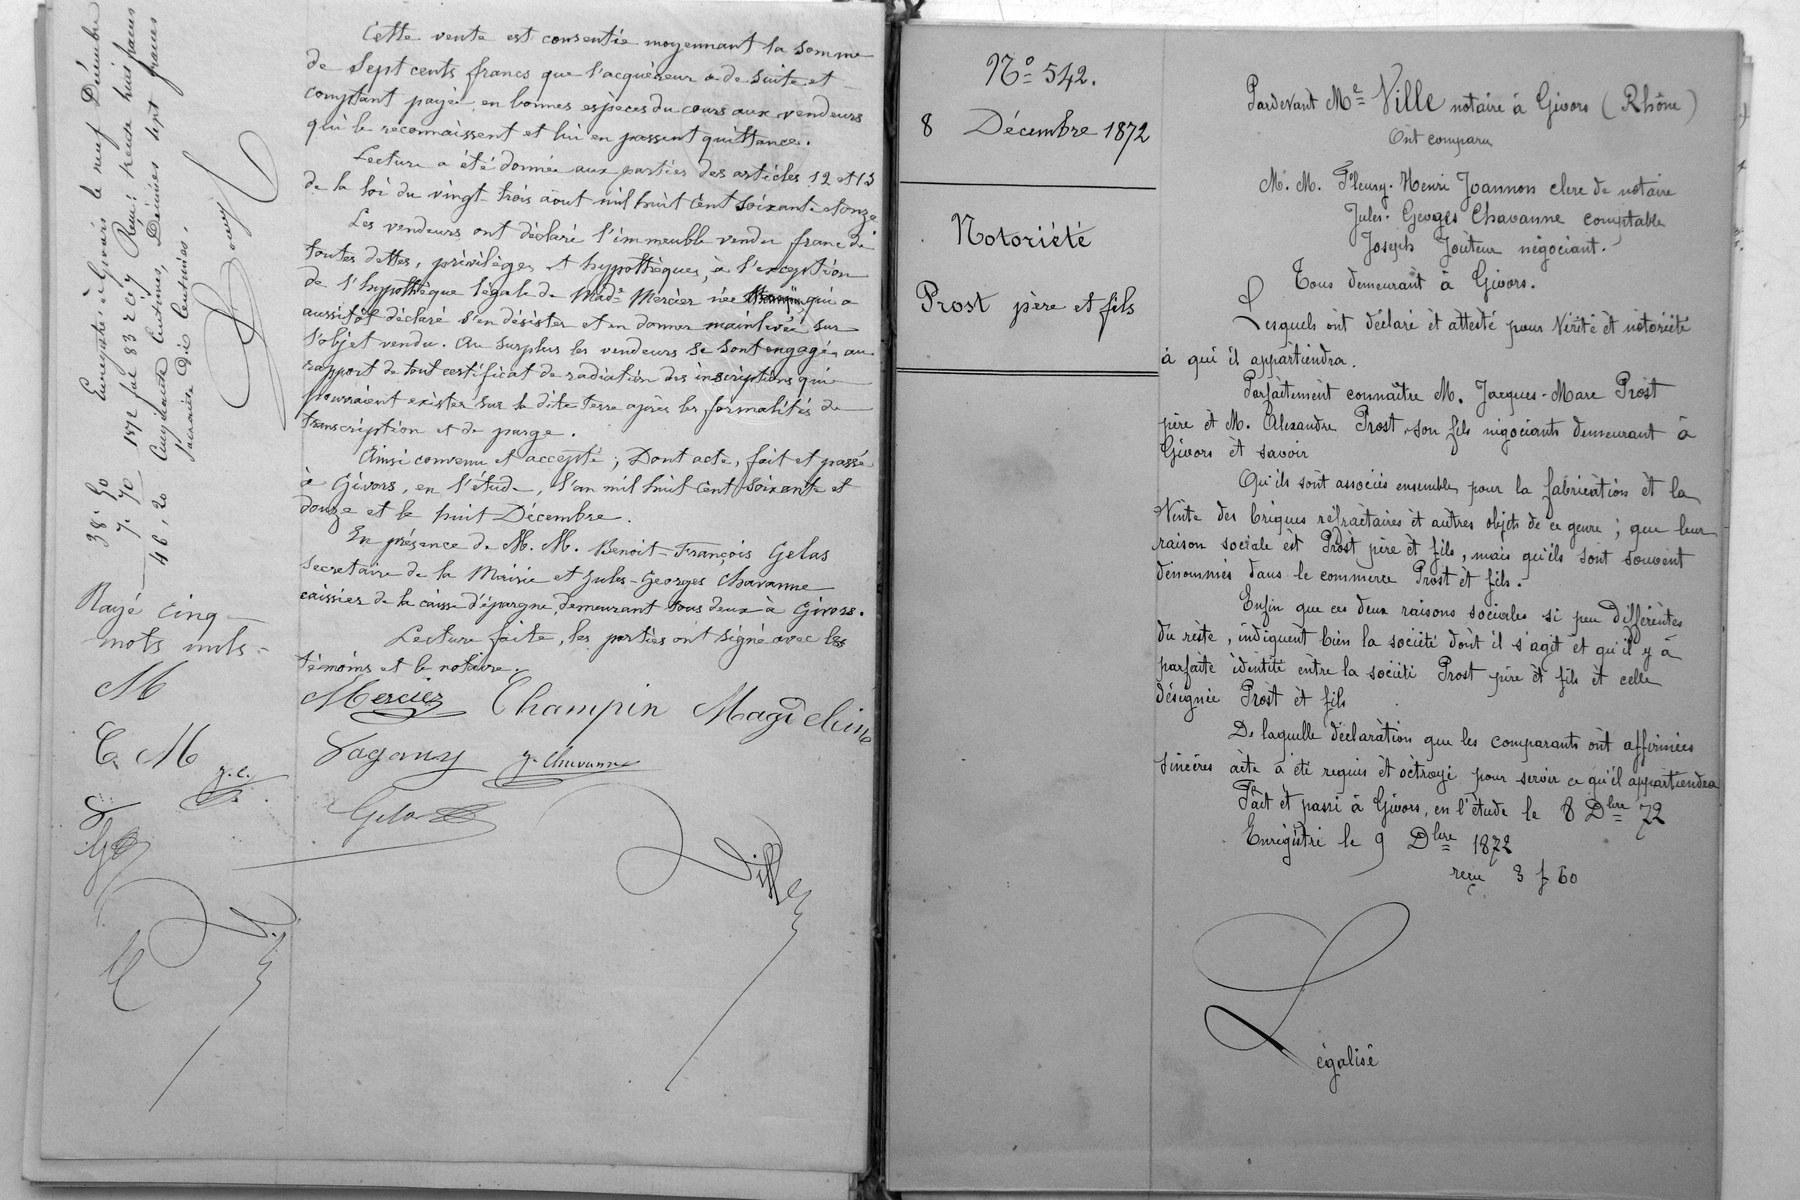 Cette vente est consentie moyennant la somme
de Sept cents francs que l'acquéreur a de suite et
comptant payée en bonnes espèces du cours aux vendeurs
qui le reconnaissent et lui en passent quittance.
Lecture a été donnée aux parties des articles 12 et 13
de la loi du vingt-trois août mil huit cent soixante et onze
Les vendeurs ont déclaré l'immeuble vendu franc de
toutes dettes, privilèges et hypothèques, à l'exception
de l'hypothèque légale de Made Mercier née qui a
aussitôt déclaré s'en désister et en donner mainlevée sur
l'objet vendu. Au surplus les vendeurs se sont engagés au
rapport de tout certificat de radiation des inscriptions qui
pourraient exister sur la dite terre après les formalités de
transcription et de purge.
Ainsi convenu et accepté ; Dont acte, fait et passé
à Givors, en l'étude, l'an mil huit cent soixante et
douze et le huit Décembre.
En présence de M. M. Benoit-François Gelas
Secrétaire de la Mairie et Jules-Georges Chavanne
caissier de la caisse d'épargne, demeurant tous deux à Givors.
Lecture faite, les parties ont signé avec les
témoins et le notaire.
Mercier Champin Magdeleine
Pagany J. Chavanne
Gelas
Ville
Enregistré à Givors le neuf Décembre
1872 fol 83 r c. Reçu : trente huit francs
cinquante centimes, Décimes sept francs
soixante dix centimes.
38. 50
7. 70
46, 20
Rayé cinq
mots nuls
M
C. M
J. C.
No 542.
8 Décembre 1872
Notoriété
Prost père et fils
Pardevant Me Ville notaire à Givors (Rhône)
Ont comparu
M. M. Fleury-Henri Joannon clerc de notaire
Jules-Georges Chavanne comptable
Joseph Jouteur négociant.
Tous demeurant à Givors.
Lesquels ont déclaré et attesté pour vérité et notoriété
à qui il appartiendra.
Parfaitement connaître M. Jacques-Marc Prost
père et M. Alexandre Prost, son fils négociants demeurant à
Givors et savoir
Qu'ils sont associés ensemble pour la fabrication et la
Vente des briques réfractaires et autres objets de ce genre ; que leur
raison sociale est Prost père et fils, mais qu'ils sont souvent
dénommés dans le commerce Prost et fils.
Enfin que ces deux raisons sociales si peu différentes
du reste, indiquent bien la société dont il s'agit et qu'il y a
parfaite identité entre la société Prost père et fils et celle
désignée Prost et fils
De laquelle déclaration que les comparants ont affirmées
sincères acte a été requis et octroyé pour servir ce qu'il appartiendra
Fait et passé à Givors, en l'étude le 8 Dbre 72
Enregistré le 9 Dbre 1872
reçu 3 f 60
Légalisé